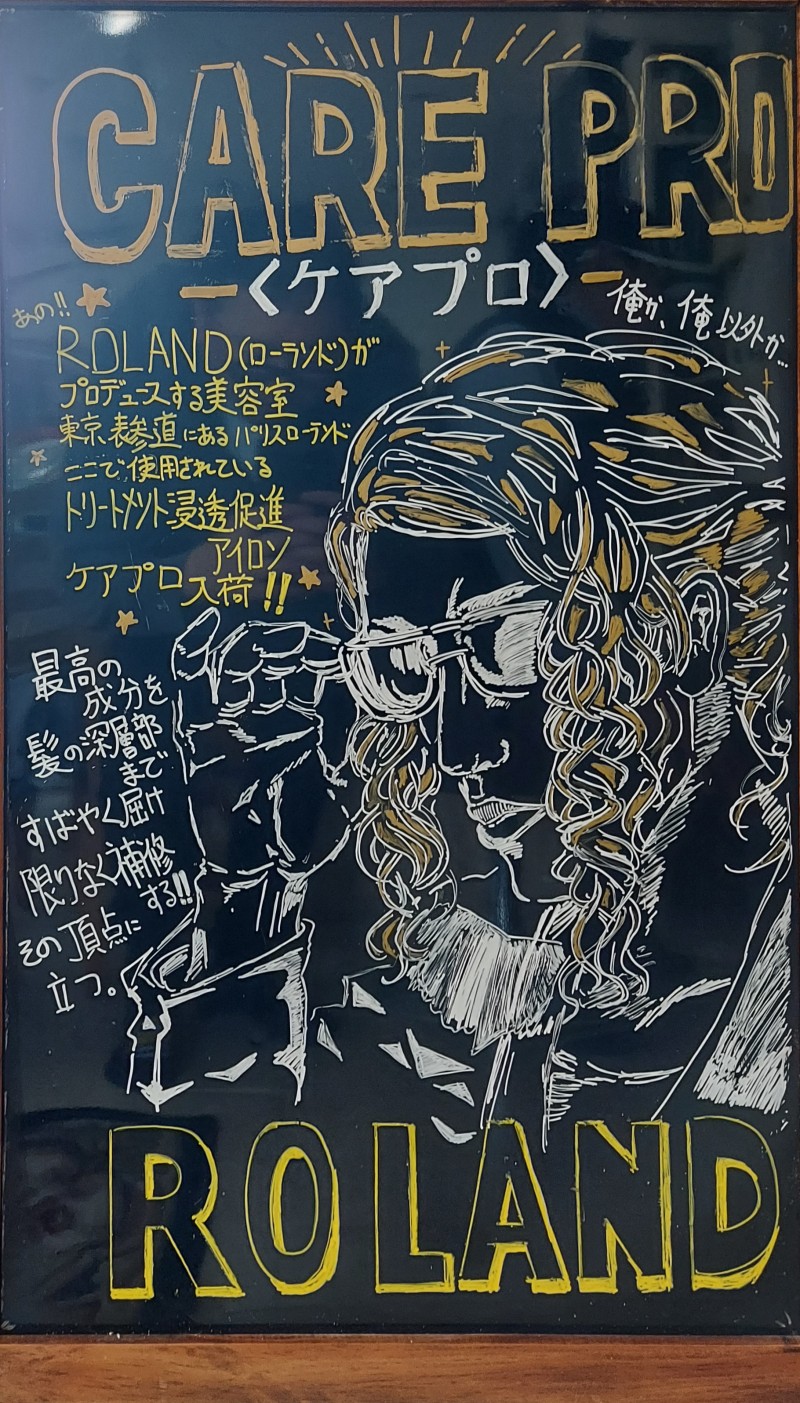 CARE PRO
〈ケアプロ〉
俺か、俺以外か…
あの!!
ROLAND(ローランド)が
プロデュースする美容室
東京表参道にあるパリスローランド
ここで使用されている
トリートメント浸透促進
アイロン
ケアプロ入荷!!
最高の
成分を
髪の深層部
まで
すばやく届け
限りなく補修
する!!
その頂点に
立つ。
ROLAND